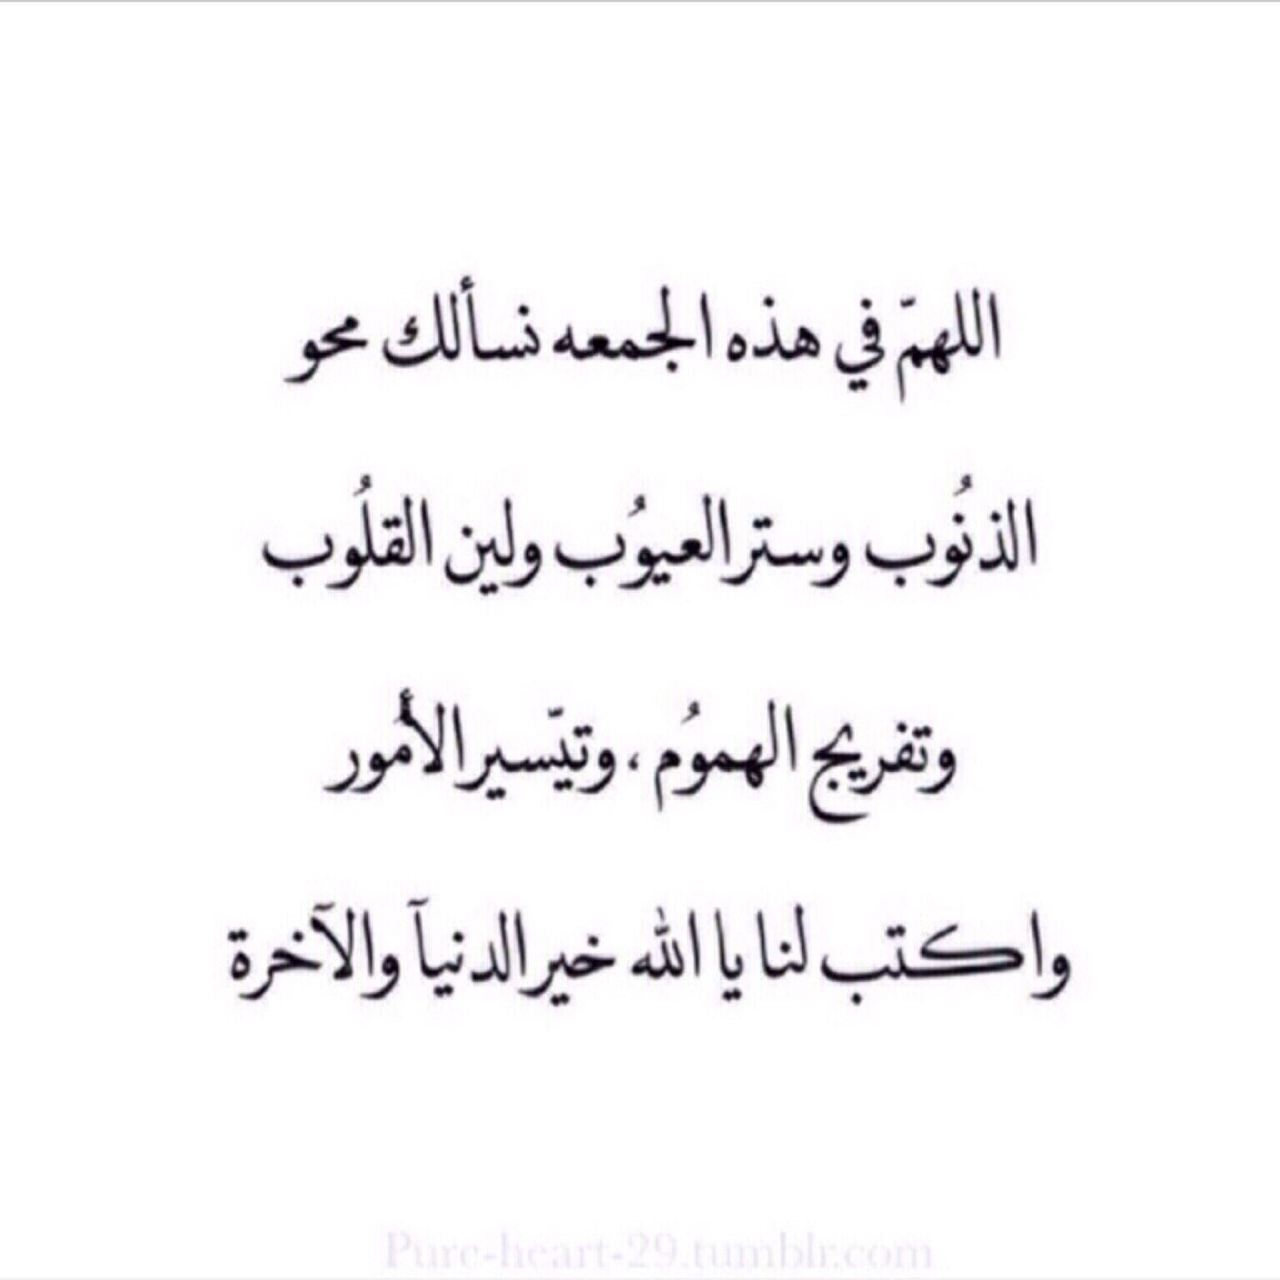 اللهمّ في هذه الجمعه نسألك محو
الذنُوب وستر العيوُب ولين القلُوب
وتفريج الهموُم ، وتيّسير الأمُور
واكتب لنا يا الله خير الدنيآ والآخرة
Pure-heart-29.tumblr.com